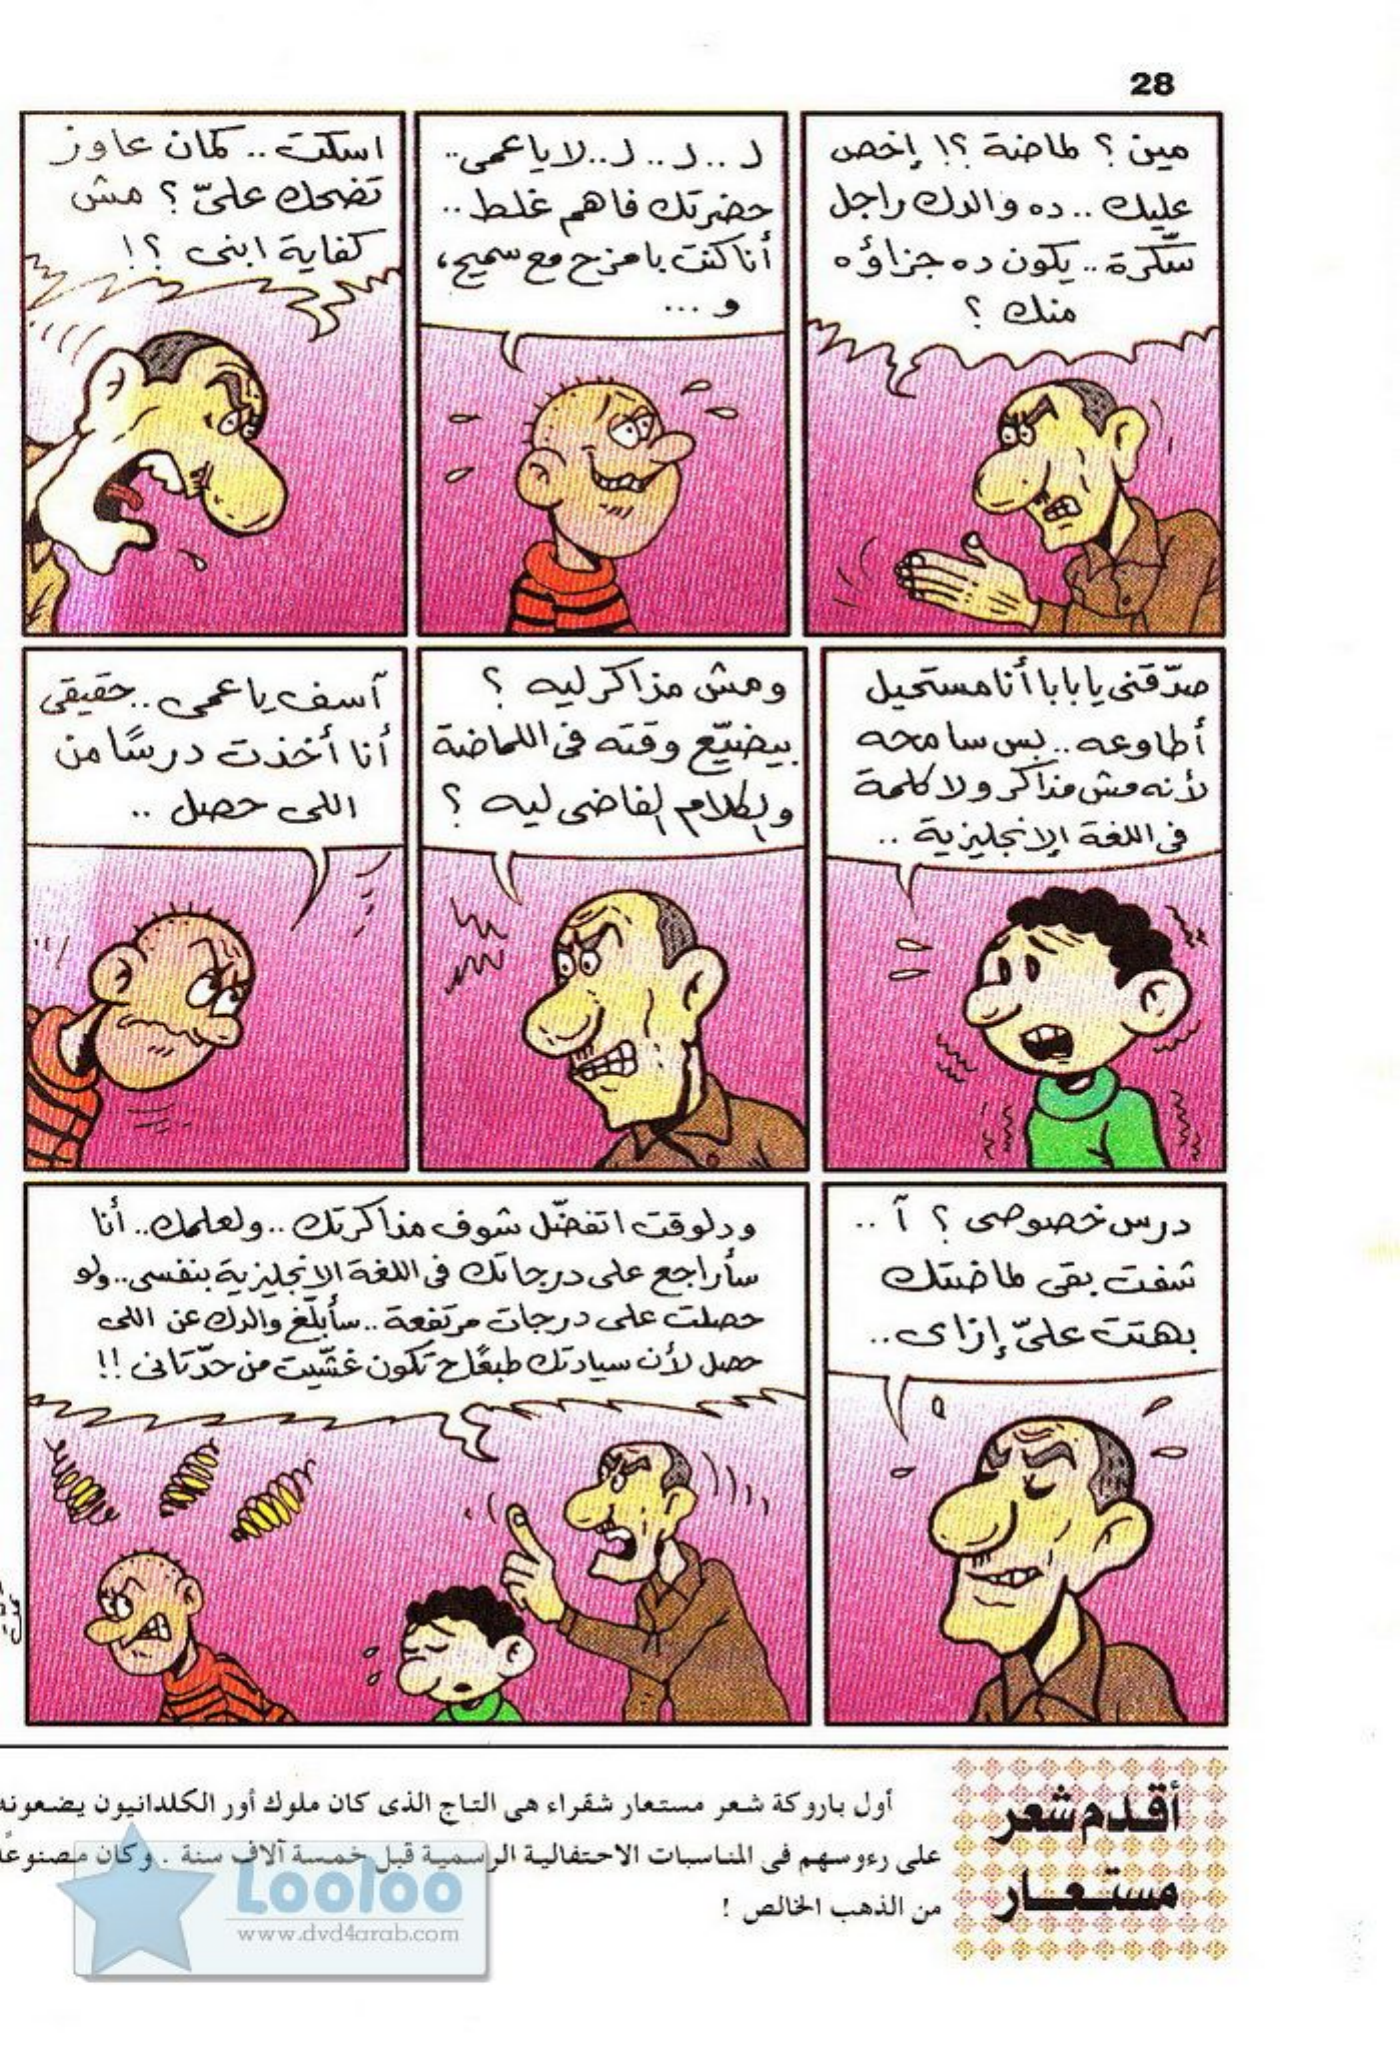 28
مين؟ لماضة؟! إخص
عليك.. ده والدك راجل
سكّرة.. يكون ده جزاؤه
منك؟
لـ.. لـ.. لـ.. لا يا عمى..
حضرتك فاهم غلط..
أنا كنت بامزح مع سميح،
و...
اسكت.. كمان عاوز
تضحك علىّ؟ مش
كفاية ابنى؟!
صدّقنى يا بابا أنا مستحيل
أطاوعه.. بس سامحه
لأنه مش مذاكر ولا كلمة
فى اللغة الإنجليزية..
ومش مذاكر ليه؟
بيضيّع وقته فى اللماضة
والكلام الفاضى ليه؟
آسف يا عمى.. حقيقى
أنا أخذت درسًا من
اللى حصل..
درس خصوصى؟ آ..
شفت بقى لماضتك
بهتت علىّ إزاى..
ودلوقت اتفضّل شوف مذاكرتك.. ولعلمك.. أنا
سأراجع على درجاتك فى اللغة الإنجليزية بنفسى.. ولو
حصلت على درجات مرتفعة.. سأبلّغ والدك عن اللى
حصل لأن سيادتك طبعًا ح تكون غشّيت من حدّ تانى!!
أقدم شعر
مستعار
أول باروكة شعر مستعار شقراء هى التاج الذى كان ملوك أور الكلدانيون يضعونه
على رءوسهم فى المناسبات الاحتفالية الرسمية قبل خمسة آلاف سنة . وكان مصنوعًا
من الذهب الخالص !
Looloo
www.dvd4arab.com